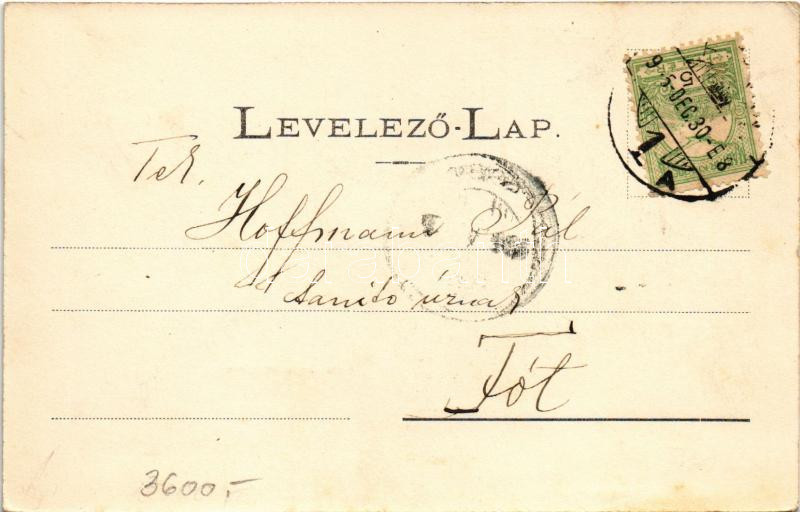 LEVELEZŐ-LAP.
Tek.
Hoffmann Pál
tanító úrnak
Fót
905 DEC. 30-E8
1 A
3600,-